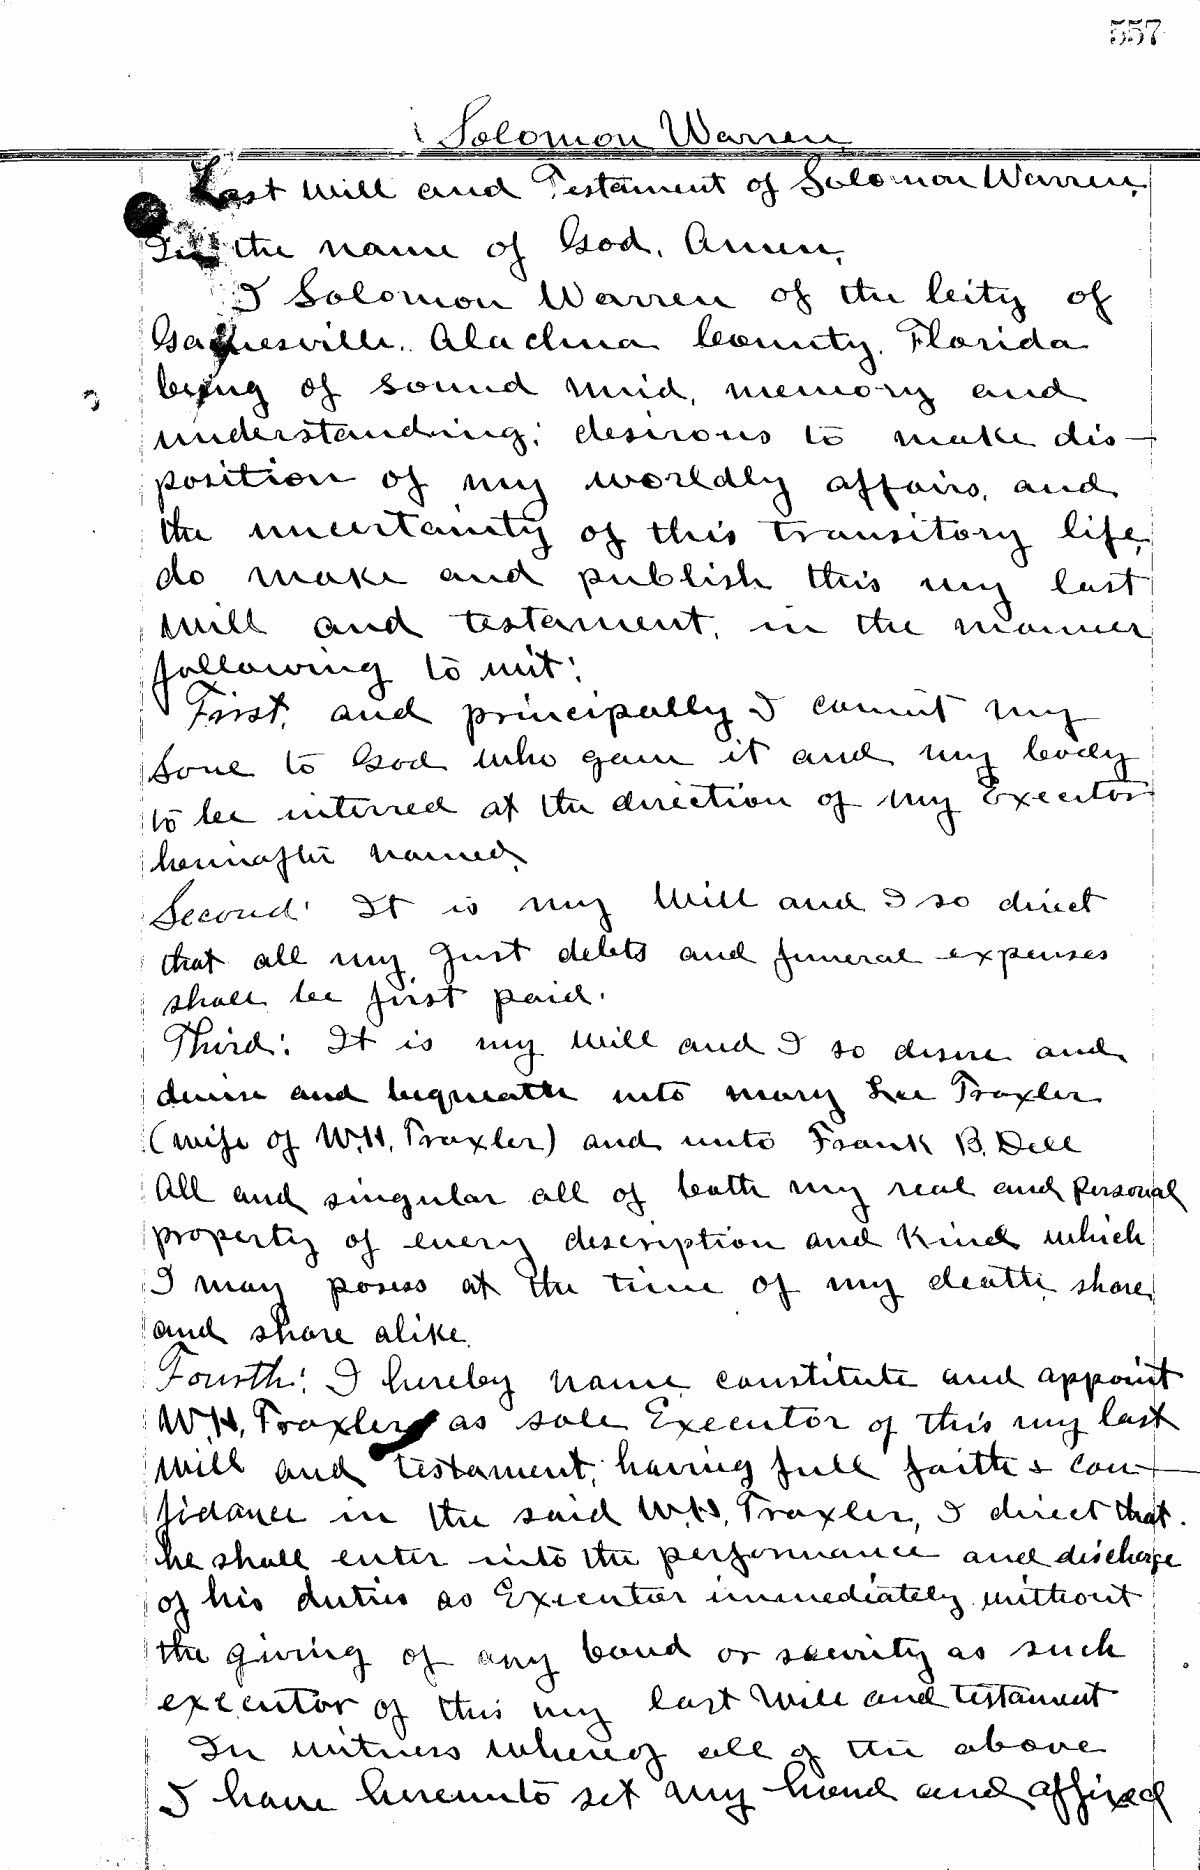 557
Solomon Warren
Last Will and Testament of Solomon Warren.
In the name of God, Amen,
I Solomon Warren of the City of
Gainesville, Alachua County, Florida
being of sound mid, memory and
understanding; desirous to make dis-
position of my worldly affairs, and
the uncertainty of this transitory life,
do make and publish this my last
will and testament, in the manner
following to wit:
First, and principally I commit my
Soul to God who gave it and my body
to be interred at the direction of my Executor
hereinafter named,
Second: It is my Will and I so direct
that all my Just debts and funeral expenses
shall be first paid.
Third: It is my Will and I so desire and
devise and bequeath unto Mary Lee Traxler
(wife of W.H. Traxler) and unto Frank B. Dell
All and singular all of both my real and personal
property of every description and kind which
I may posess at the time of my death, share
and share alike.
Fourth: I hereby name constitute and appoint
W.H. Traxler as sole Executor of this my last
will and testament, having full faith & con-
fidance in the said W.H. Traxler, I direct that
he shall enter into the performance and discharge
of his duties as Executor immediately without
the giving of any bond or security as such
executor of this my last Will and testament
In witness whereof all of the above
I have hereunto set my hand and affixed